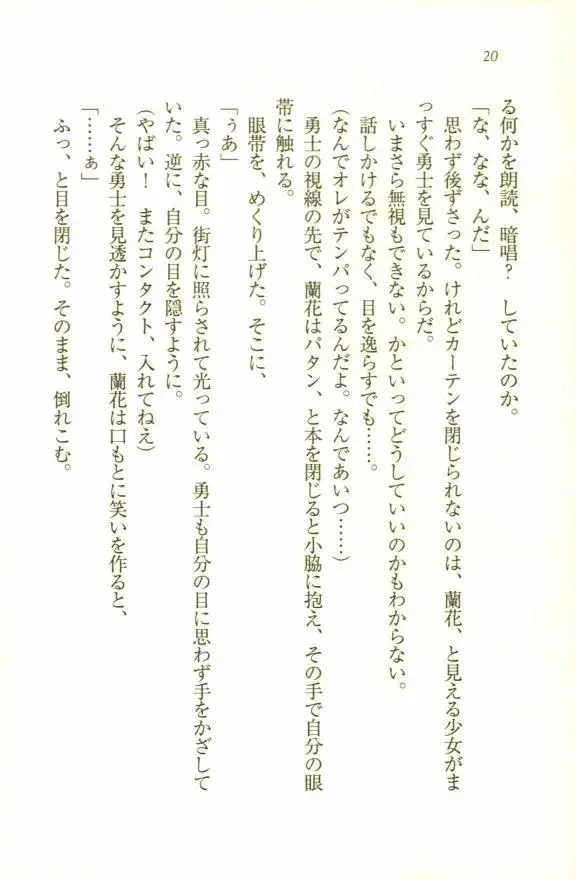 20
る何かを朗読、暗唱？　していたのか。
「な、なな、んだ」
　思わず後ずさった。けれどカーテンを閉じられないのは、蘭花、と見える少女がま
っすぐ勇士を見ているからだ。
　いまさら無視もできない。かといってどうしていいのかもわからない。
　話しかけるでもなく、目を逸らすでも……。
（なんでオレがテンパってるんだよ。なんであいつ……）
　勇士の視線の先で、蘭花はパタン、と本を閉じると小脇に抱え、その手で自分の眼
帯に触れる。
　眼帯を、めくり上げた。そこに、
「ぅあ」
　真っ赤な目。街灯に照らされて光っている。勇士も自分の目に思わず手をかざして
いた。逆に、自分の目を隠すように。
（やばい！　またコンタクト、入れてねえ）
　そんな勇士を見透かすように、蘭花は口もとに笑いを作ると、
「……ぁ」
　ふっ、と目を閉じた。そのまま、倒れこむ。